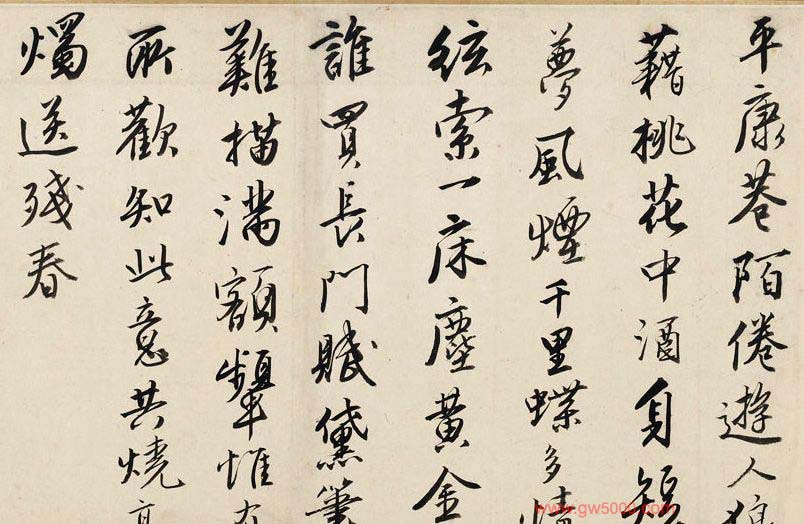 平康巷陌倦遊人狼
藉桃花中酒身短
夢風煙千里蝶多情
絃索一床塵黃金
誰買長門賦黛筆
難描滿額顰惟有
所歡知此意共燒高
燭送殘春
www.gw5000.com